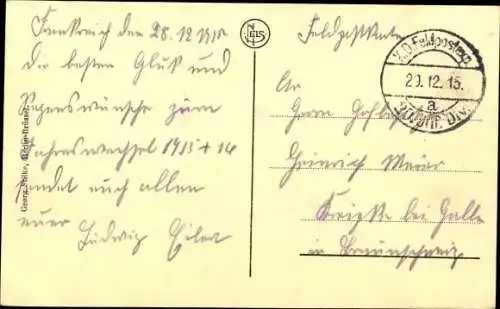 Frankreich den 28.12.1915
Die besten Glük und
Segenswünsche zum
Jahreswechsel 1915 + 16
sendet euch allen
euer
Ludwig Eilert
Georg Stilke,
NELS
Feldpostkarte
K.D. Feldpostexp.
29.12.15.
a
Div.
An
Herrn
Heinrich Meier
bei Halle
in Braunschweig